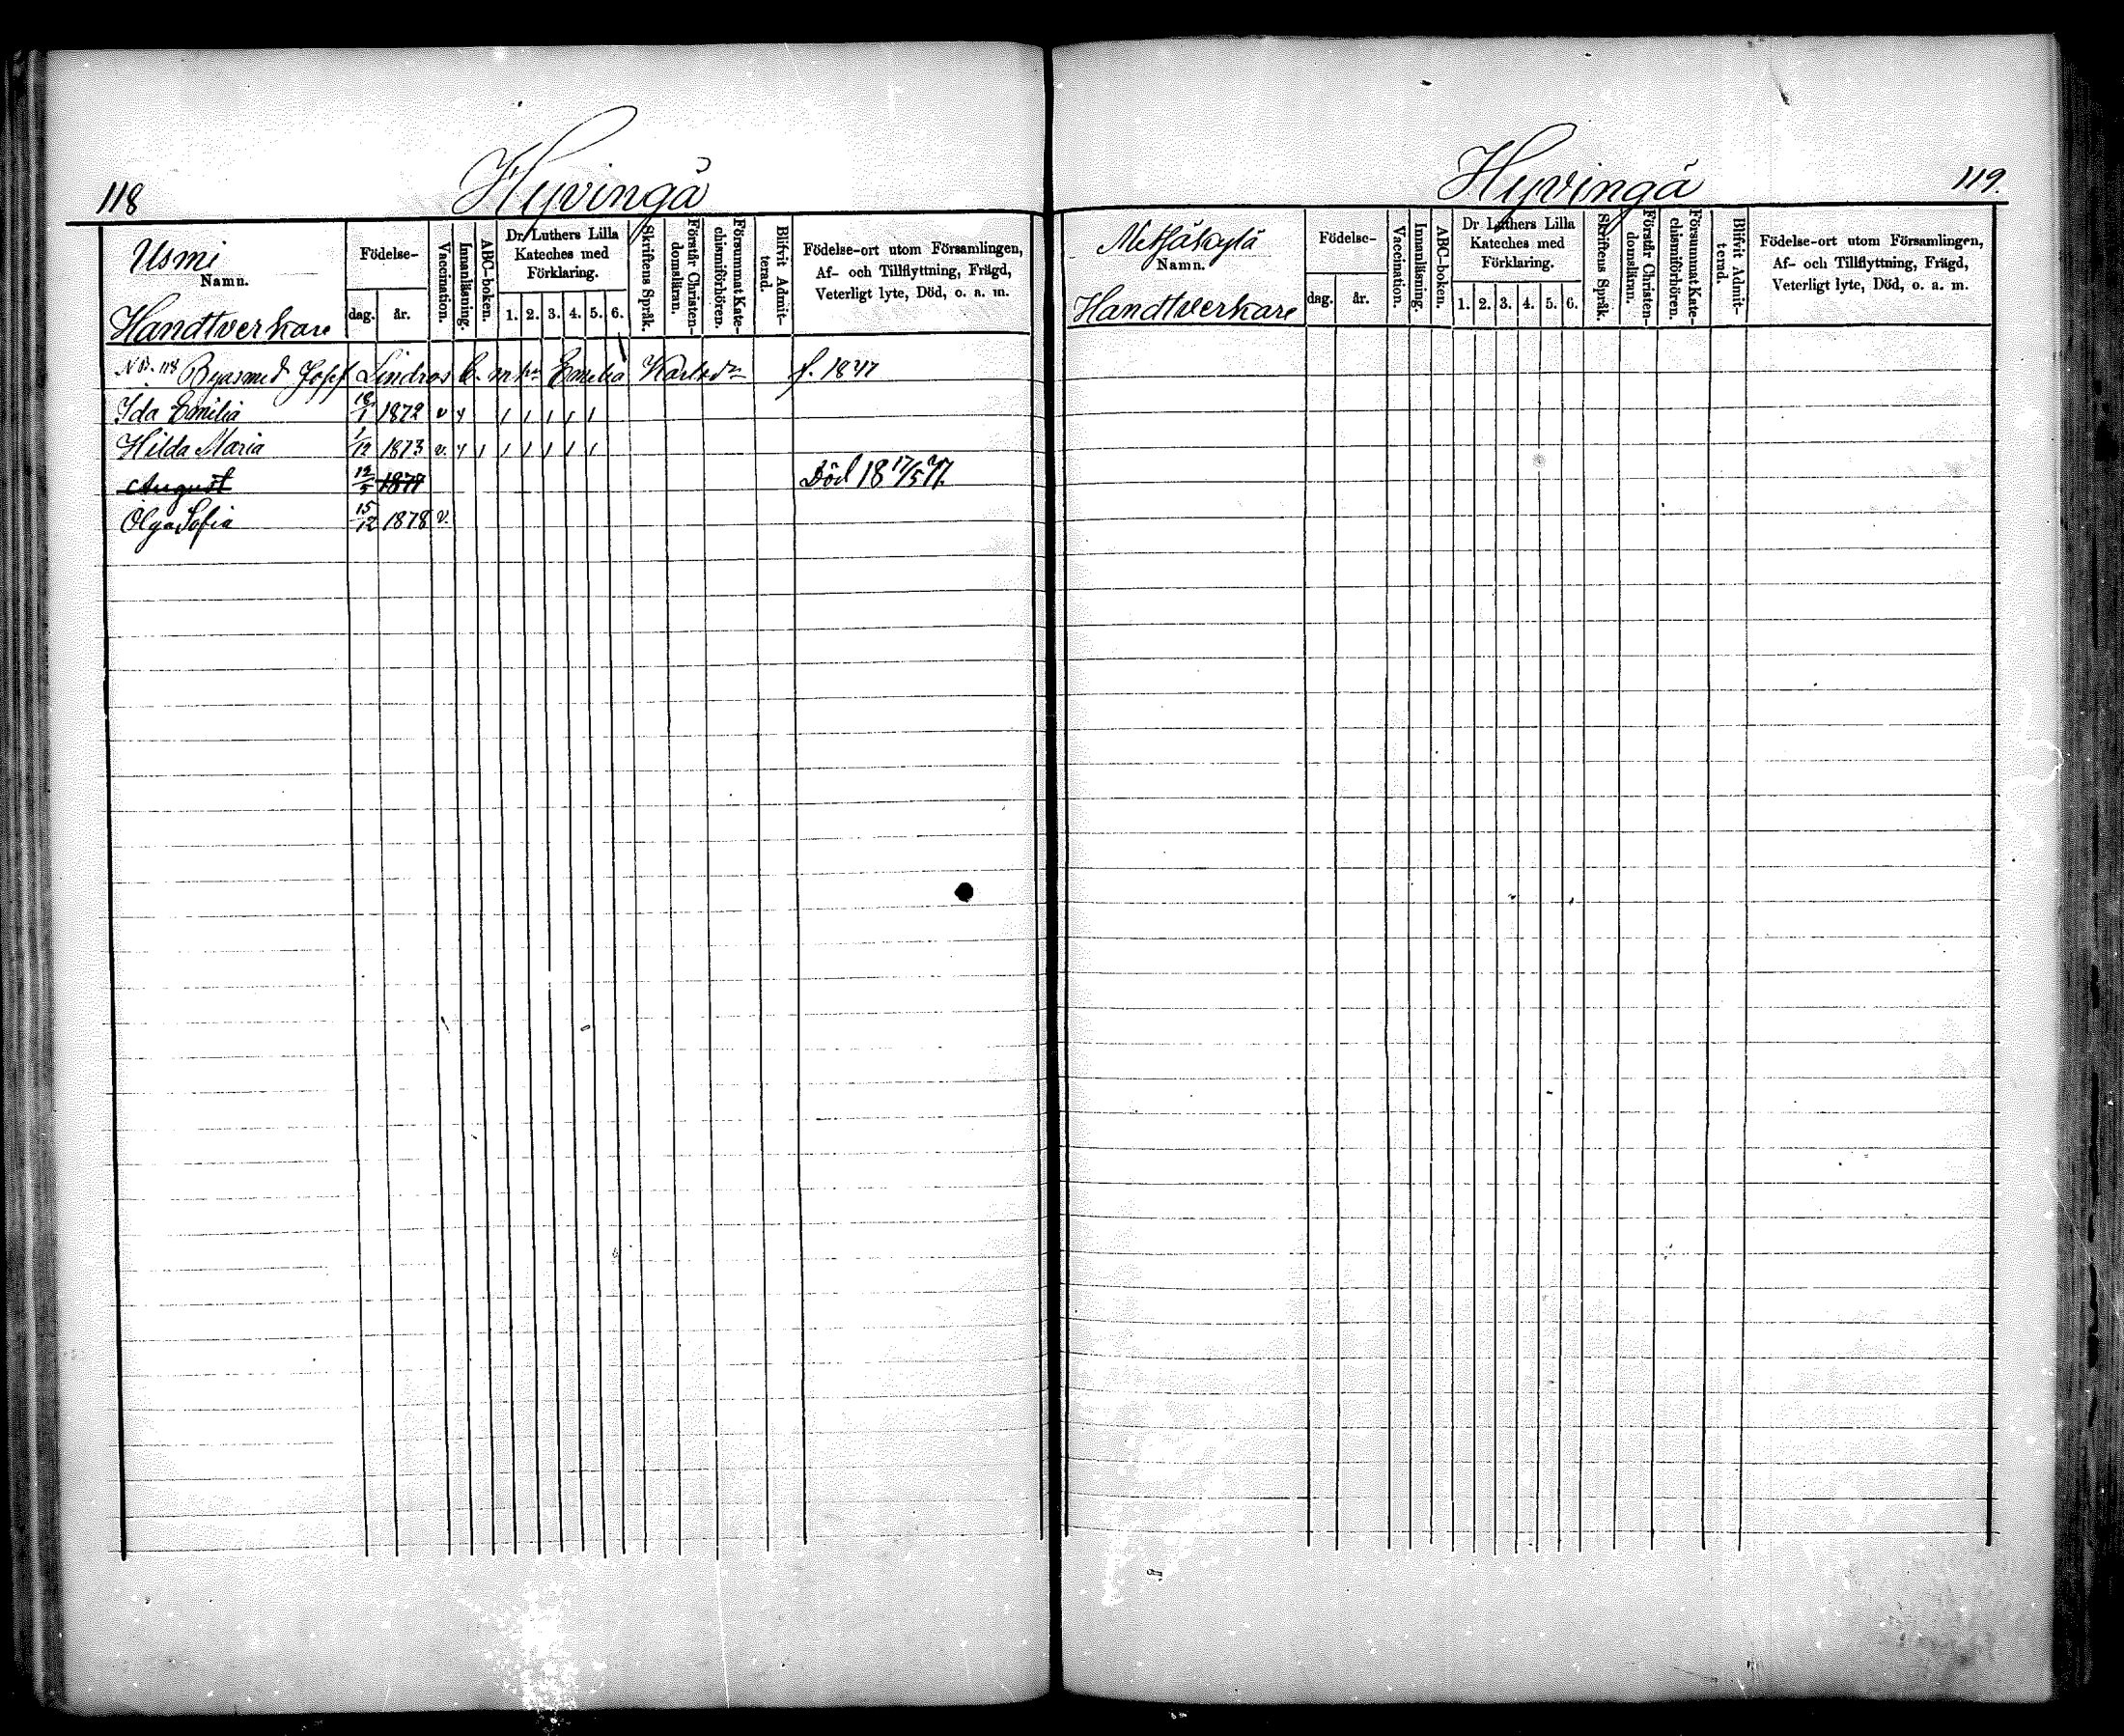 118
Hyvingä
Usmi
Namn.
Handtverkare
Födelse-
dag.
år.
Vaccination.
Innanläsning.
ABC-boken.
Dr Luthers Lilla
Kateches med
Förklaring.
1. 2. 3. 4. 5. 6.
Skriftens Språk.
Förstår Christen-
domsläran.
Försummat Kate-
chismiförhören.
Blifvit Admit-
terad.
Födelse-ort utom Församlingen,
Af- och Tillflyttning, Frägd,
Veterligt lyte, Död, o. a. m.
Bysmed Josef Lindros Emelia f. 1847
Ida Emilia 18/1 1872 v
Hilda Maria 1/12 1873 v.
August 12/5 1877 Död 18 17/5 77.
Olga Sofia 15/12 1878 v.
Hyvingä
119.
Namn.
Handtverkare
Födelse-
dag.
år.
Vaccination.
Innanläsning.
ABC-boken.
Dr Luthers Lilla
Kateches med
Förklaring.
1. 2. 3. 4. 5. 6.
Skriftens Språk.
Förstår Christen-
domsläran.
Försummat Kate-
chismiförhören.
Blifvit Admit-
terad.
Födelse-ort utom Församlingen,
Af- och Tillflyttning, Frägd,
Veterligt lyte, Död, o. a. m.